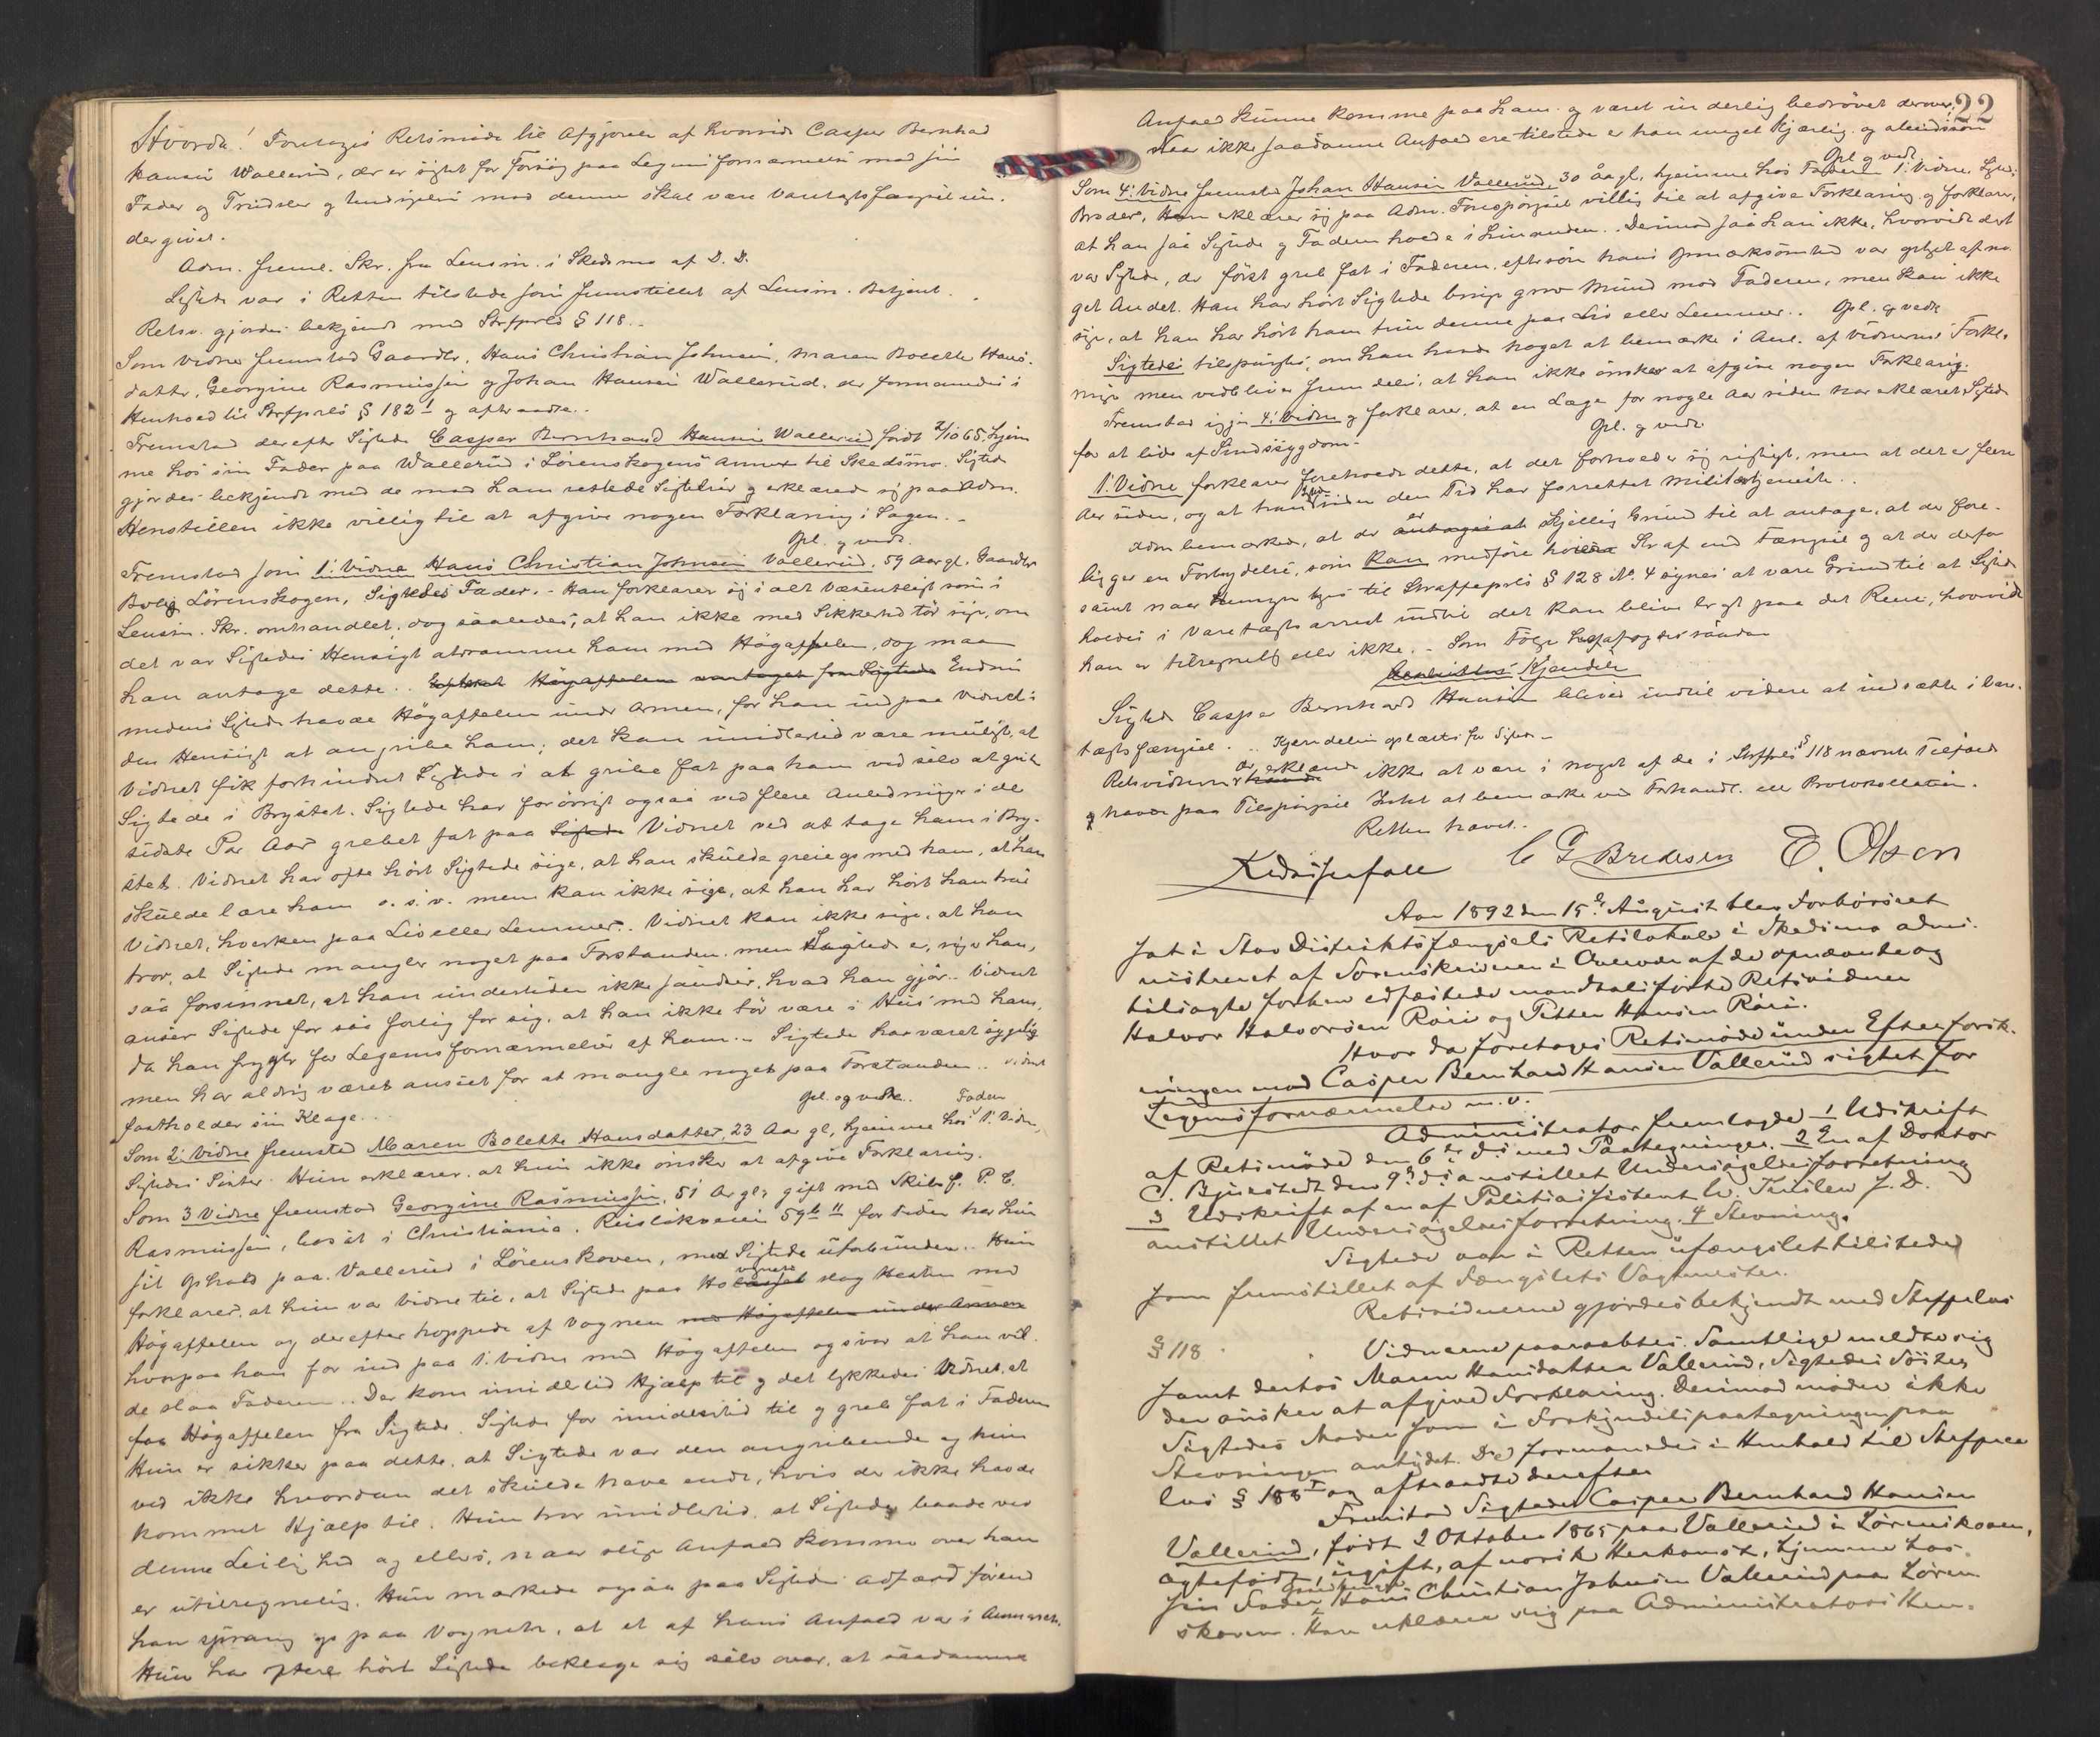 Hvorda! Foretoges Retsmöde til Afgjörelse af hvorvidt Casper Bernhard
Hansen Wallerud, der er sigtet for Forsög paa Legemsfornærmelse mod sin
Fader og Trudsler og hvorvidt mod denne skal være Varetægtsfængsel
dergivet.
Adm. freml. Skr. fra Lensm. i Skedsmo af D. D.
Sigtede var i Retten tilstede som fremstillet af Lensm. Betjent.
Retsv. gjordes bekjendt med Strfprls § 118.
Som Vidner fremstod Gaardbr. Hans Christian Johnsen, Maren Bolette Hans-
datter, Georgine Rasmussen og Johan Hansen Wallerud, der formanedes i
Henhold til Strfprls § 182 1 og aftraadte.
Fremstod derefter Sigtede Casper Bernhard Hansen Wallerud född 2/10 65, hjem
me hos sin Fader paa Wallerud i Lörenskogens Annex til Skedsmo. Sigtede
gjordes bekjendt med de mod ham rettede Sigtelser og erklærede sig paa Adm.
Henstillen ikke villig til at afgive nogen Forklaring i Sagen.
Opl. og vedt.
Fremstod som 1. Vidne Hans Christian Johnsen Vallerud, 59 Aar gl. Gaardbr
Bolig Lörenskogen, Sigtedes Fader. - Han forklarer sig i alt Væsentligt som i
Lensm. Skr. omhandlet, dog saaledes, at han ikke med Sikkerhed tör sige, om
det var Sigtedes Hensigt at ramme ham med Högaffelen, dog maa
han antage dette. Högaffelen var taget fra Sigtede Endnu
medens Sigtede havde Högaffelen under Armen, for han ind paa Vidnet i
den Hensigt at angribe ham; det kan imidlertid være muligt, at
Vidnet fik forhindret Sigtede i at gribe fat paa ham ved selv at gribe
Sigtede i Brystet. Sigtede har forövrigt ogsaa ved flere Anledninger i de
sidste Par Aar grebet fat paa Sigtede Vidnet ved at tage ham i Bry-
stet. Vidnet har ofte hört Sigtede sige, at han skulde greie op med ham, at han
skulde lære ham o. s. v. men kan ikke sige, at han har hört ham true
Vidnet, hverken paa Liv eller Lemmer. Vidnet kan ikke sige, at han
tror, at Sigtede mangler noget paa Forstanden. men Sigtede er, siger han,
saa forsinnet, at han undertiden ikke sandser, hvad han gjör. Vidnet
anser Sigtede for saa farlig for sig, at han ikke tör være i Hus med ham,
da han frygter for Legemsfornærmelser af ham. - Sigtede har været sygelig
men har aldrig været anseet for at mangle noget paa Forstanden. Vidnet
fastholder sin Klage.
Opl. og vedt. Faderen
Som 2. Vidne fremstod Maren Bolette Hansdatter, 23 Aar gl, hjemme hos 1. Vidne,
Sigtedes Söster. Hun erklærer, at hun ikke önsker at afgive Forklaring.
Som 3 Vidne fremstod Georgine Rasmussen, 51 Ar gl, gift med Skibsf. P. C.
Rasmussen, bosat i Christiania. 59 b II for Tiden har hun
sit Ophold paa Vallerud i Lörenskoven, med Sigtede uforbunden. Hun
forklarer, at hun var Vidne til, at Sigtede paa Hövognen slog Hesten med
Högaffelen og derefter hoppede af Vognen med Högaffelen under Armen
hvorpaa han for ind paa 1. Vidne med Högaffelen og svor at han vil-
de slaa Faderen. Der kom imidlertid Hjælp til og det lykkedes Vidnet at
faa Högaffelen fra Sigtede. Sigtede for imidlertid til og greb fat i Faderen
Hun er sikker paa dette, at Sigtede var den angribende og hun
ved ikke hvordan det skulde have endt, hvis der ikke havde
kommet Hjælp til. Hun tror imidlertid, at Sigtede baade ved
denne Leilighed og ellers, naar slige Anfald kommer over ham
er utilregnelig. Hun mærkede ogsaa paa Sigtedes Adfærd förend
han sprang op paa Vognen, at et af hans Anfald var i Anmarsch.
Hun har oftere hört Sigtede beklage sig selv over, at saadanne
22
Anfald kunne komme paa ham og været inderlig bedrövet derover.
Naar ikke saadanne Anfald ere tilstede er han meget kjærlig og arbeidssom
Opl. og vedt.
Som 4. Vidne fremstod Johan Hansen Vallerud, 30 Aar gl, hjemme hos Faderen 1. Vidne, Sigt.
Broder, Han erklærer sig paa Adm. Forespörgsel villig til at afgive Forklaring og forklarer,
at han saa Sigtede og Faderen holde i hinanden. Derimod saa han ikke, hvorvidt det
var Sigtede, der först greb fat i Faderen, eftersom hans Opmærksomhed var optaget af no-
get Andet. Han har hört Sigtede bruge grov Mund mod Faderen, men kan ikke
sige, at han har hört ham true denne paa Liv eller Lemmer. Opl. og vedt
Sigtede tilspurgtes, om han havde noget at bemærke i Anl. af Vidnernes Forkl.
ringer men vedbliver fremdeles, at han ikke önsker at afgive nogen Forklaring.
Fremstod igjen 4. Vidne og forklarer, at en Læge for nogle Aar siden har erklæret Sigtede
for at lide af Sindssygdom. Opl. og vedt.
1. Vidne forklarer foreholdt dette, at det forholder sig rigtigt, men at det er flere
Aar siden, og at han siden den Tid har forrettet Militærtjeneste.
Adm bemærkede, at der er skjellig Grund til at antage, at der fore-
ligger en Forbrydelse, som kan medföre höiere Straf end Fængsel og at der derfor
samt naar Hensyn tages til Straffeprls § 128 No. 4 synes at være Grund til at Sigtede
holdes i Varetægtsarrest indtil det kan blive bragt paa det Rene, hvorvidt
han er tilregnelig eller ikke. - Som Fölge heraf afsagdes saadan
Kjendelse
Sigtede Casper Bernhard Hansen bliver indtil videre at indsætte i Vare-
tægtsfængsel. Kjendelsen oplæstes for Sigtede.
Retsvidnerne erklærede ikke at være i noget af de i Strfprls § 118 nævnte Tilfælde
og havde paa Tilspörgsel Intet at bemærke ved Forhandl. eller Protokollationen.
Retten hævet.
C G Bredesen E. Olsen
Aar 1892 den 15de August blev Forhörsret
sat i Stav Distriktsfængsels Retslokale i Skedsmo admi-
nistreret af Sorenskriveren i Overvær af de opnævnte og
tilsagte forhen edfæstede mandtalsförte Retsvidner
Halvor Halvorsen Röri og Petter Hansen Röri.
Hvor da foretoges Retsmöde under Efterforsk-
ningen mod Casper Bernhard Hansen Vallerud sigtet for
Legemsfornærmelse m. v.
Administrator fremlagde 1 Udskrift
af Retsmöde den 6te ds med Paategninger. 2 En af Doktor
C. Bjursted den 9de ds anstillet Undersögelsesforretning
3 Udskrift af en af Politiassistent W. J. D.
anstillet Undersögelsesforretning. 4 Stevning.
Sigtede var i Retten ufængslet tilstede
som fremstillet af Fængslets Vagtmester.
Retsvidnerne gjordes bekjendt med Strfprls
§ 118
Vidnerne paaraabtes. Samtlige meldte sig
samt derhos Maren Hansdatter Vallerud, Sigtedes Söster
der önsker at afgive Forklaring. Derimod möder ikke
Sigtedes Moder som i Forkyndelsespaategningen paa
Stevningen antydet. De formanedes i Henhold til Strfproc
lov § 188 1 og aftraadte derefter
Fremstod Sigtede Casper Bernhard Hansen
Vallerud, födt 2 Oktober 1865 paa Vallerud i Lörenskoven,
ægteföd, ugift, af norsk Herkomst, hjemme hos
sin Fader Gaardbruger Hans Christian Johnsen Vallerud paa Lören
skoven. Han erklærer sig paa Administrators Hen-